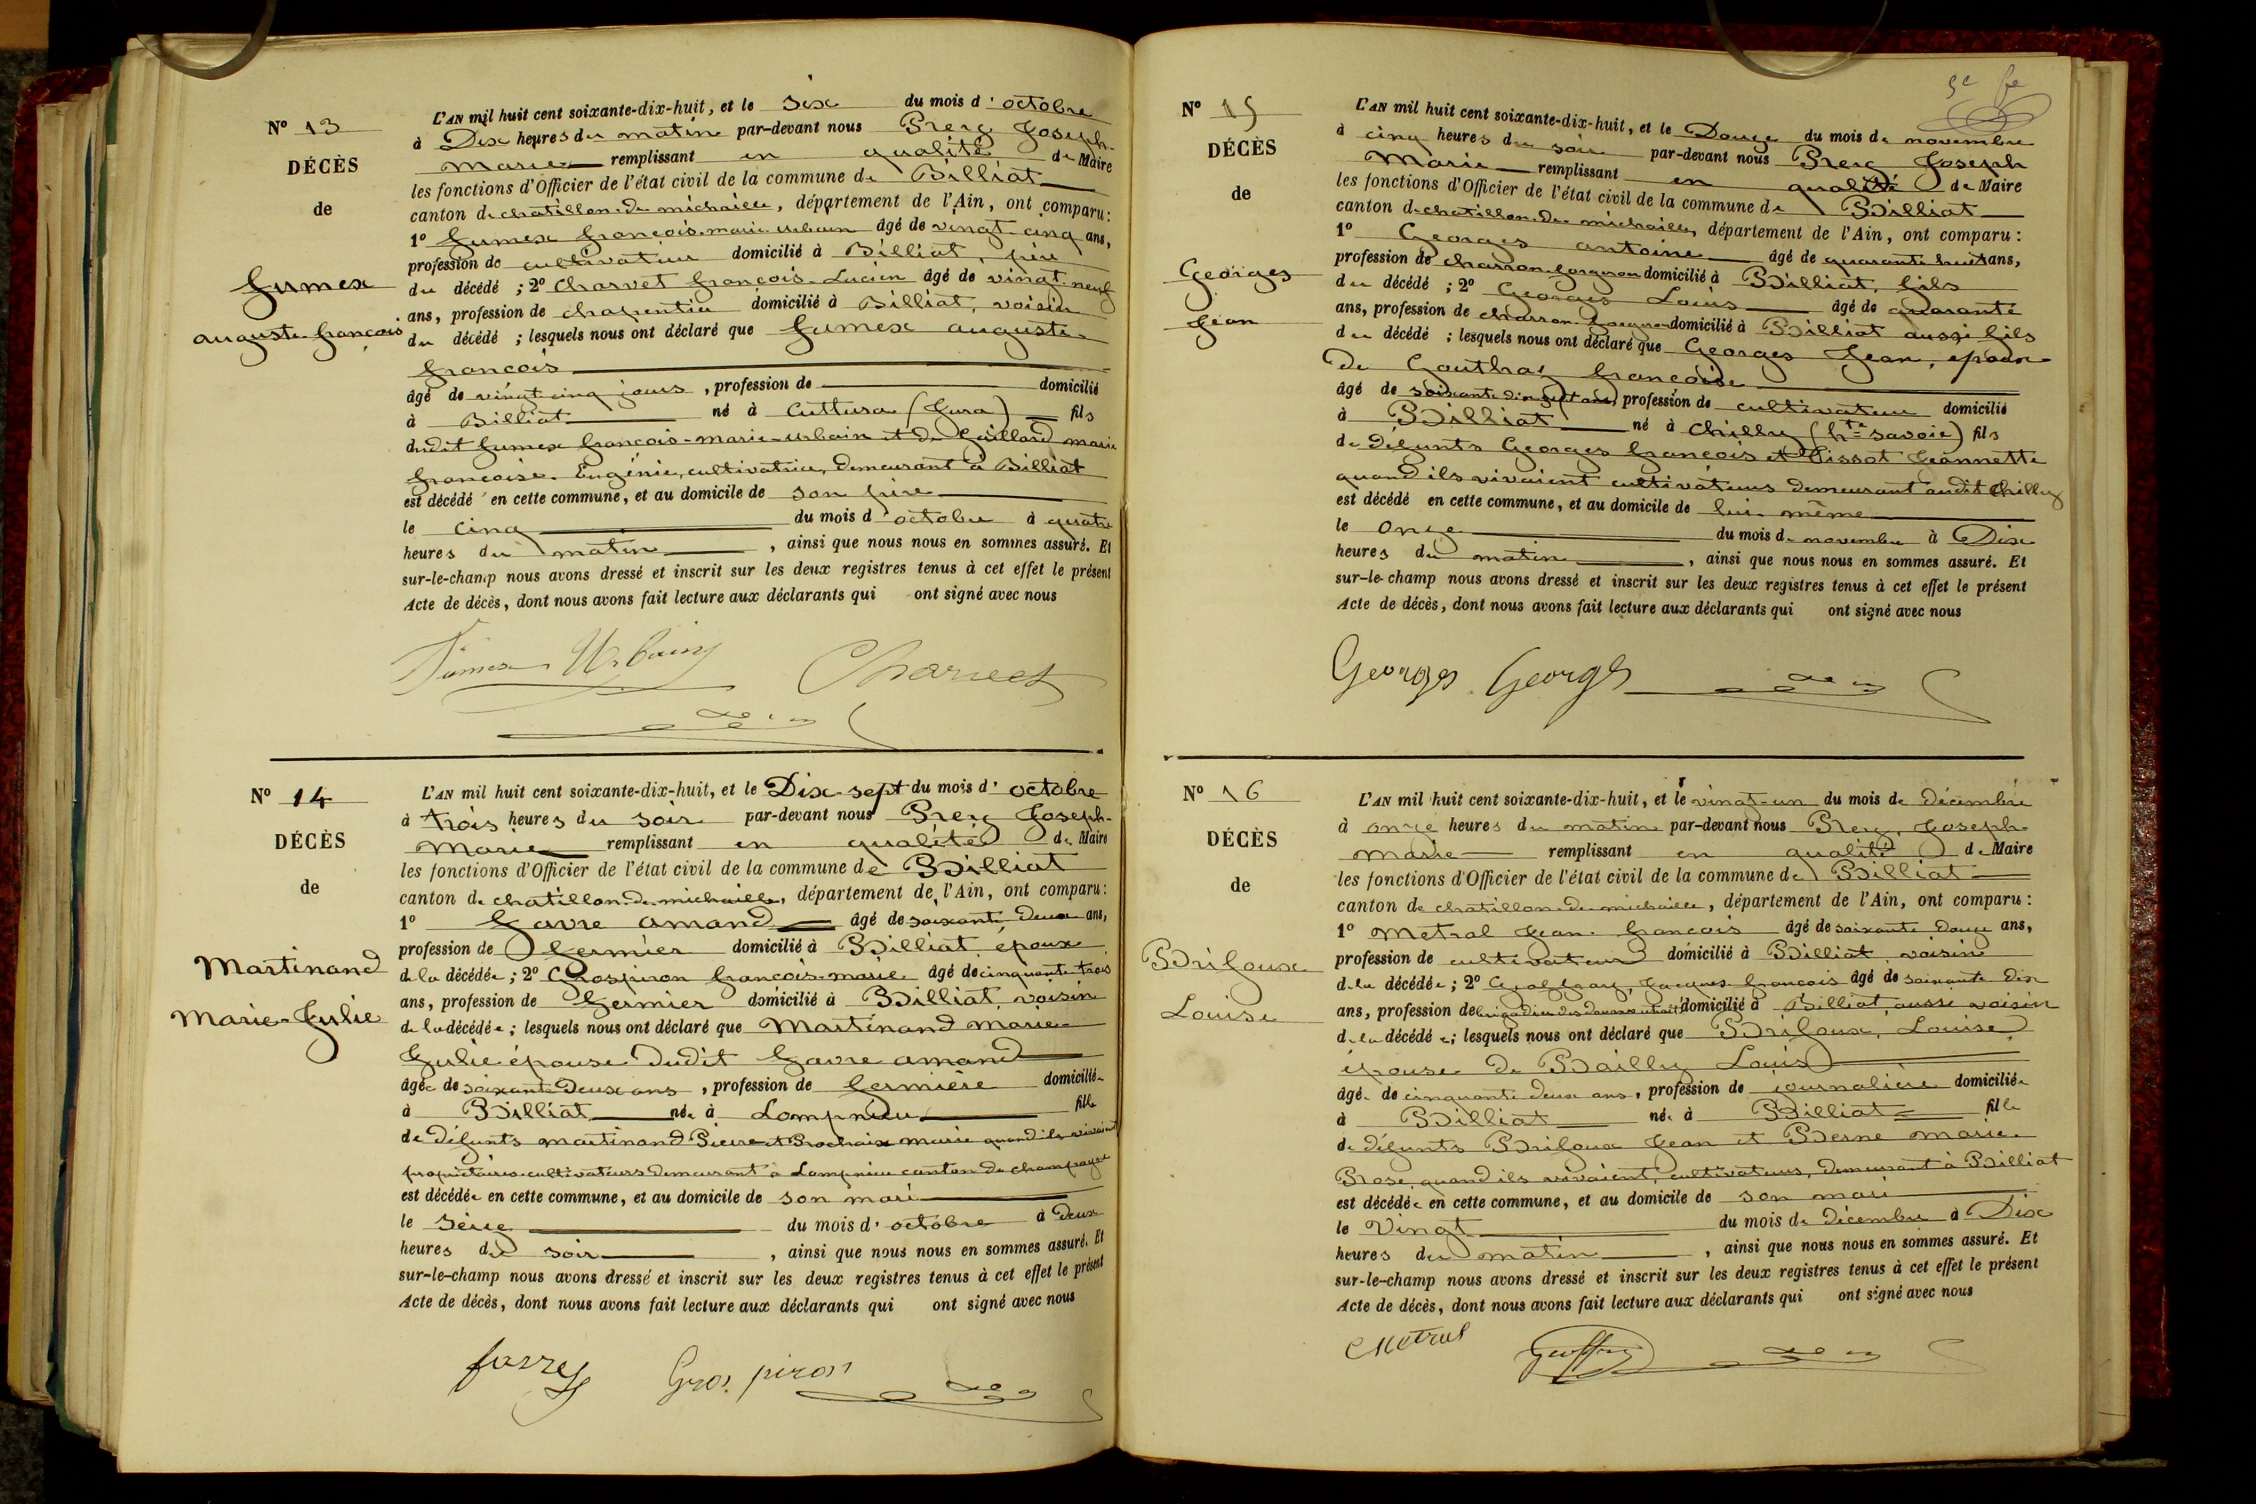 N° 13
DÉCÈS
de
Fumex
auguste françois
L'AN mil huit cent soixante-dix-huit, et le six du mois d'octobre
à Dix heures du matin par-devant nous Joseph-
Marie remplissant en qualité de Maire
les fonctions d'Officier de l'état civil de la commune de Billiat
canton de chatillon-de-michaille, département de l'Ain, ont comparu :
1° Fumex françois-marie-urbain âgé de vingt-cinq ans,
profession de cultivateur domicilié à Billiat, père
du décédé ; 2° Charvet françois-Lucien âgé de vingt-neuf
ans, profession de charpentier domicilié à Billiat, voisin
du décédé ; lesquels nous ont déclaré que Fumex auguste-
françois
âgé de vingt-cinq jours, profession de domicilié
à Billiat né à Cuttura (Jura) fils
dudit Fumex françois-marie-urbain et de Gaillard marie
françoise-Eugénie, cultivatrice, demeurant à Billiat
est décédé en cette commune, et au domicile de son père
le cinq du mois d'octobre à quatre
heures du matin, ainsi que nous nous en sommes assuré. Et
sur-le-champ nous avons dressé et inscrit sur les deux registres tenus à cet effet le présent
Acte de décès, dont nous avons fait lecture aux déclarants qui ont signé avec nous
Fumex Urbain Charvet
N° 14
DÉCÈS
de
Martinand
Marie-Julie
L'AN mil huit cent soixante-dix-huit, et le Dix-sept du mois d'octobre
à trois heures du soir par-devant nous Joseph-
Marie remplissant en qualité de Maire
les fonctions d'Officier de l'état civil de la commune de Billiat
canton de chatillon-de-michaille, département de l'Ain, ont comparu :
1° Favre amand âgé de soixante-deux ans,
profession de fermier domicilié à Billiat époux
de la décédée ; 2° Grospiron françois-marie âgé de cinquante-trois
ans, profession de fermier domicilié à Billiat, voisin
de la décédée ; lesquels nous ont déclaré que Martinand Marie-
Julie épouse dudit favre amand
âgée de soixante-deux ans, profession de fermière domiciliée
à Billiat née à Lompnieu fille
de défunts martinand Pierre et Brochaix marie quand ils vivaient
propriétaires-cultivateurs demeurant à Lompnieu canton de champagne
est décédée en cette commune, et au domicile de son mari
le seize du mois d'octobre à Deux
heures du soir, ainsi que nous nous en sommes assuré. Et
sur-le-champ nous avons dressé et inscrit sur les deux registres tenus à cet effet le présent
Acte de décès, dont nous avons fait lecture aux déclarants qui ont signé avec nous
favre Gros piron
N° 15
DÉCÈS
de
Georges
Jean
L'AN mil huit cent soixante-dix-huit, et le Douze du mois de novembre
à cinq heures du soir par-devant nous Joseph
Marie remplissant en qualité de Maire
les fonctions d'Officier de l'état civil de la commune de Billiat
canton de chatillon-de-michaille, département de l'Ain, ont comparu :
1° Georges antoine âgé de quarante-huit ans,
profession de charron-forgeron domicilié à Billiat, fils
du décédé ; 2° Georges Louis âgé de quarante
ans, profession de charron-forgeron domicilié à Billiat aussi fils
du décédé ; lesquels nous ont déclaré que Georges Jean, époux
de Gauthaz françoise
âgé de soixante-dix-sept ans, profession de cultivateur domicilié
à Billiat né à Chilly (hte-savoie) fils
de défunts Georges françois et Pissot Jeannette
quand ils vivaient cultivateurs demeurant audit Chilly
est décédé en cette commune, et au domicile de lui-même
le onze du mois de novembre à Dix
heures du matin, ainsi que nous nous en sommes assuré. Et
sur-le-champ nous avons dressé et inscrit sur les deux registres tenus à cet effet le présent
Acte de décès, dont nous avons fait lecture aux déclarants qui ont signé avec nous
Georges Georges
N° 16
DÉCÈS
de
Brifoux
Louise
L'AN mil huit cent soixante-dix-huit, et le vingt-un du mois de décembre
à onze heures du matin par-devant nous Joseph-
marie remplissant en qualité de Maire
les fonctions d'Officier de l'état civil de la commune de Billiat
canton de chatillon-de-michaille, département de l'Ain, ont comparu :
1° Metral Jean-françois âgé de soixante-douze ans,
profession de cultivateur domicilié à Billiat voisin
de la décédée ; 2° Geoffray, Jacques-françois âgé de soixante-dix
ans, profession de brigadier des douanes retraité domicilié à Billiat, aussi voisin
de la décédée ; lesquels nous ont déclaré que Brifoux, Louise
épouse de Bailly Louis
âgée de cinquante-deux ans, profession de journalière domiciliée
à Billiat née à Billiat fille
de défunts Brifoux Jean et Berne marie-
Rose, quand ils vivaient, cultivateurs, demeurant à Billiat
est décédée en cette commune, et au domicile de son mari
le Vingt du mois de décembre à Dix
heures du matin, ainsi que nous nous en sommes assuré. Et
sur-le-champ nous avons dressé et inscrit sur les deux registres tenus à cet effet le présent
Acte de décès, dont nous avons fait lecture aux déclarants qui ont signé avec nous
Metral Geoffray